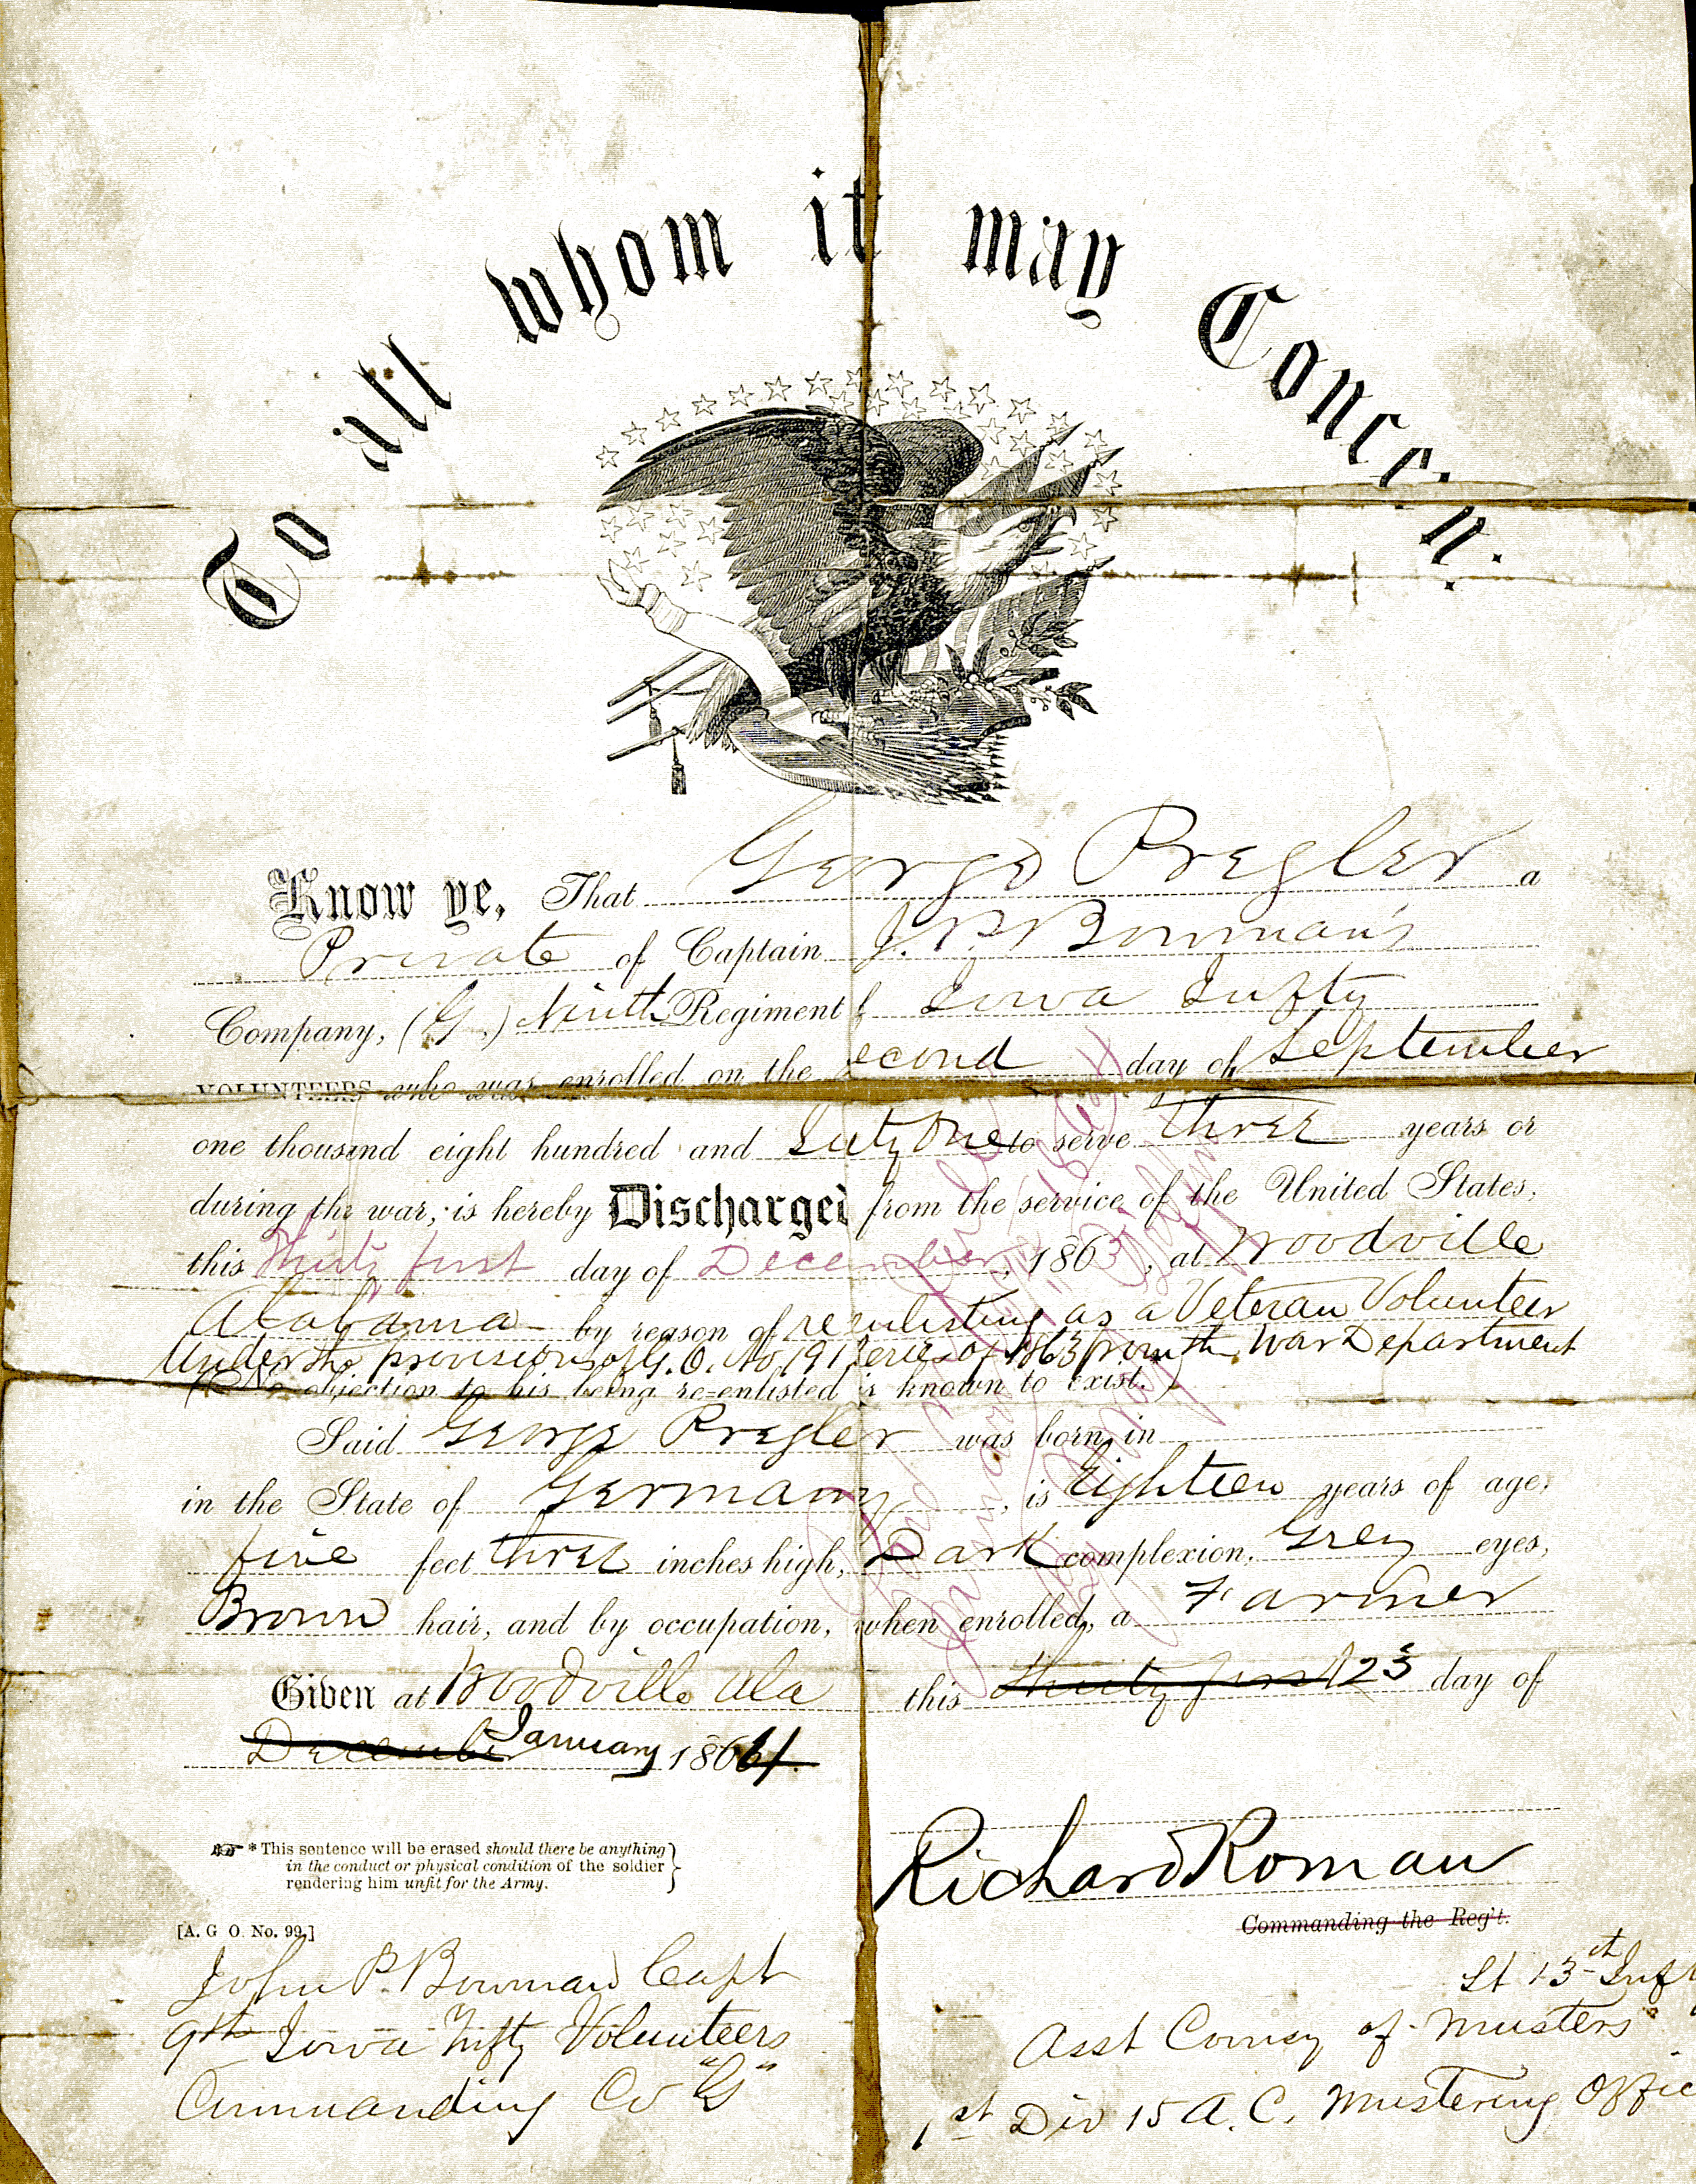 To all whom it may Concern.
Know ye, That George Pregler a
Private of Captain J. P. Bowman's
Company, (G.) Ninth Regiment of Iowa Infty
VOLUNTEERS who was enrolled on the Second day of September
one thousand eight hundred and Sixty One to serve three years or
during the war, is hereby Discharged from the service of the United States,
this Thirty first day of December, 1863, at Woodville
Alabama by reason of reenlisting as a Veteran Volunteer
Under the provisions of G. O. No. 191 Series of 1863 from the War Department
(No objection to his being re-enlisted is known to exist.)
Said George Pregler was born in
in the State of Germany, is Eighteen years of age,
five feet three inches high, Dark complexion, Grey eyes,
Brown hair, and by occupation, when enrolled, a Farmer
Given at Woodville Ala this thirty first 23 day of
December January 1864.
* This sentence will be erased should there be anything
in the conduct or physical condition of the soldier
rendering him unfit for the Army.
[A. G. O. No. 99.]
Richard Roman
Commanding the Reg't.
John P. Bowman Capt
9th Iowa Infty Volunteers
Commanding Co "G"
Lt 13th Inft
Asst Comsy of Musters
1st Div 15 A. C. Mustering Offic